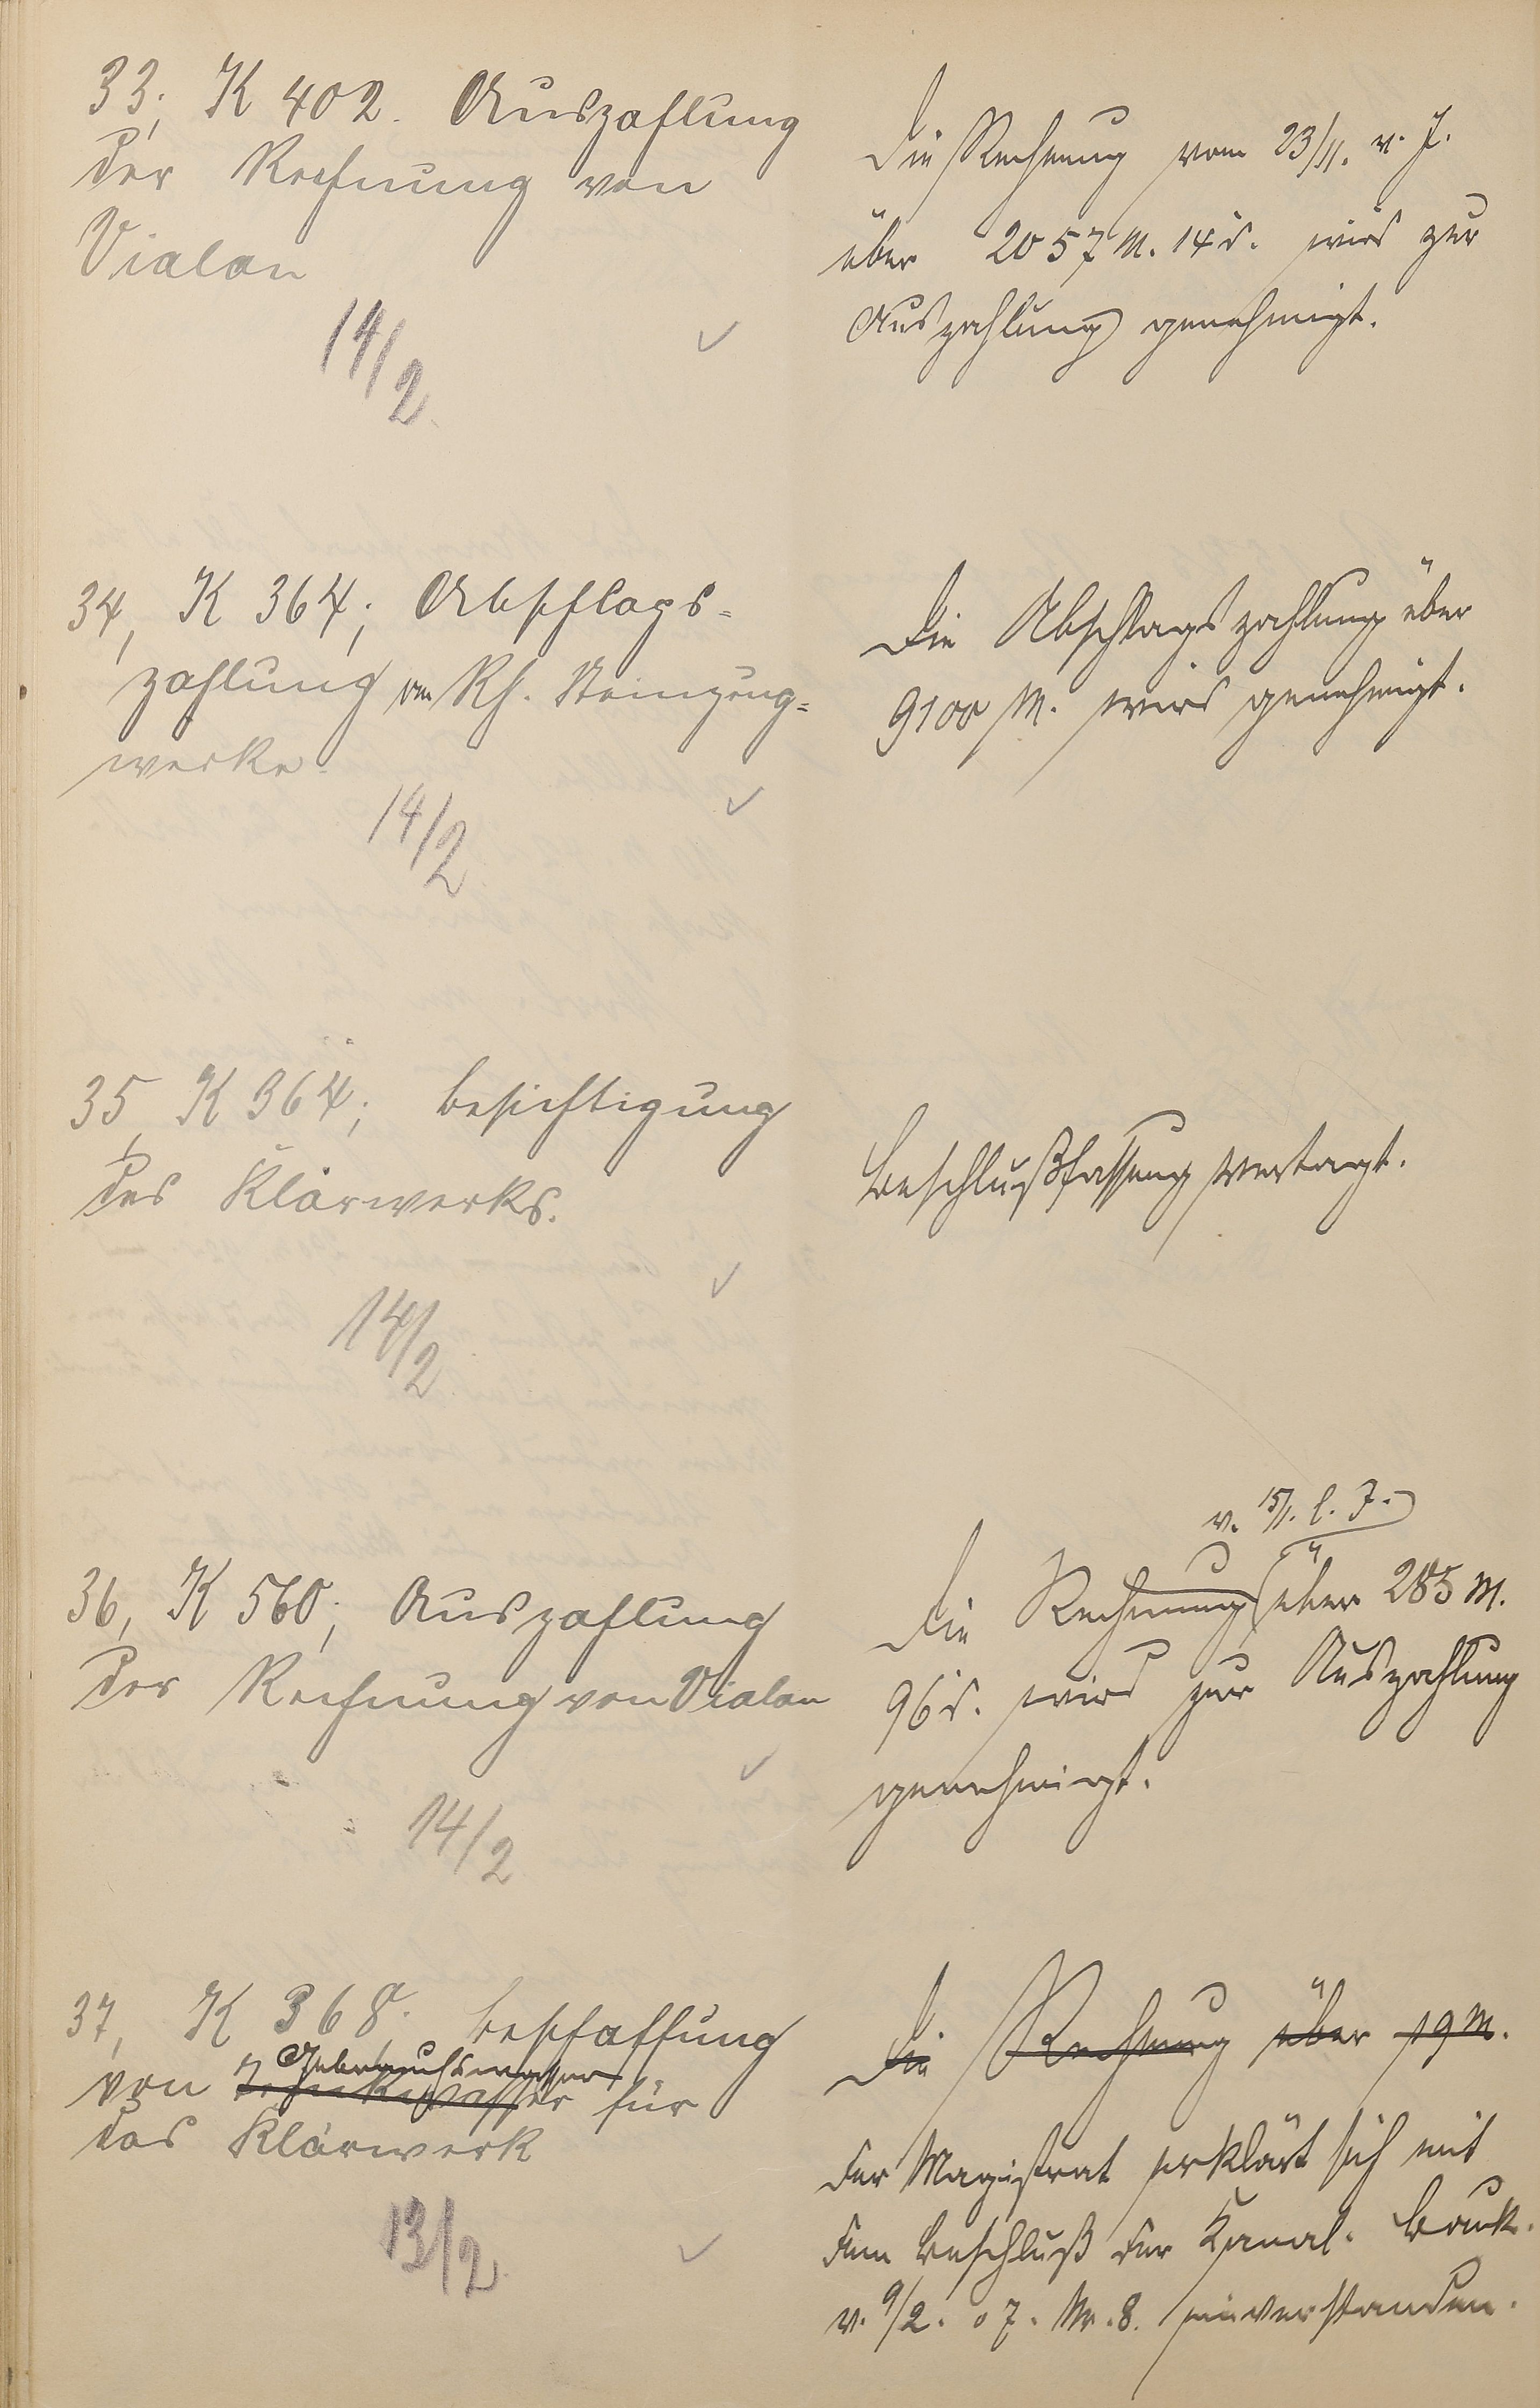 33, K 402. Auszahlung
der Rechnung von
Vialon
14/2
Die Rechnung vom 23/11. v. J.
über 2057 M. 14 d. wird zur
Auszahlung genehmigt.
34, K 364; Abschlags-
zahlung an Rh. Steinzeug-
werke
14/2
Die Abschlagszahlung über
9100 M. wird genehmigt.
35, K 364; Besichtigung
des Klärwerks.
14/2
Beschlußfassung vertagt.
36, K 560; Auszahlung
der Rechnung von Vialon
14/2
v. 15/1. l. J.
Die Rechnung über 285 M.
96 d. wird zur Auszahlung
genehmigt.
37, K 368. Beschaffung
Gebrauchswasser
von Trinkwasser für
das Klärwerk
13/2
Die Rechnung über 19 M.
Der Magistrat erklärt sich mit
dem Beschluß der Kanal.
v. 9/2. 07. Nr. 8. einverstanden.